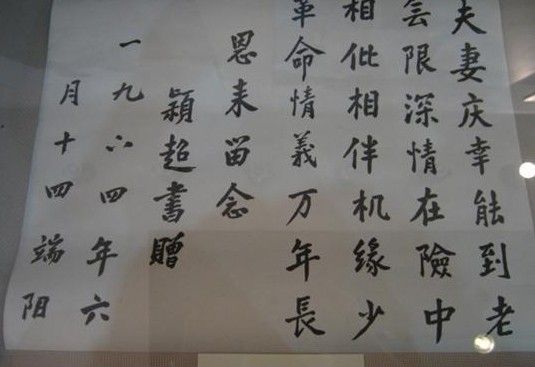 夫妻庆幸能到老
无限深情在險中
相伿相伴机缘少
革命情義万年長
恩来留念
颖超書贈
一九六四年六
月十四端阳